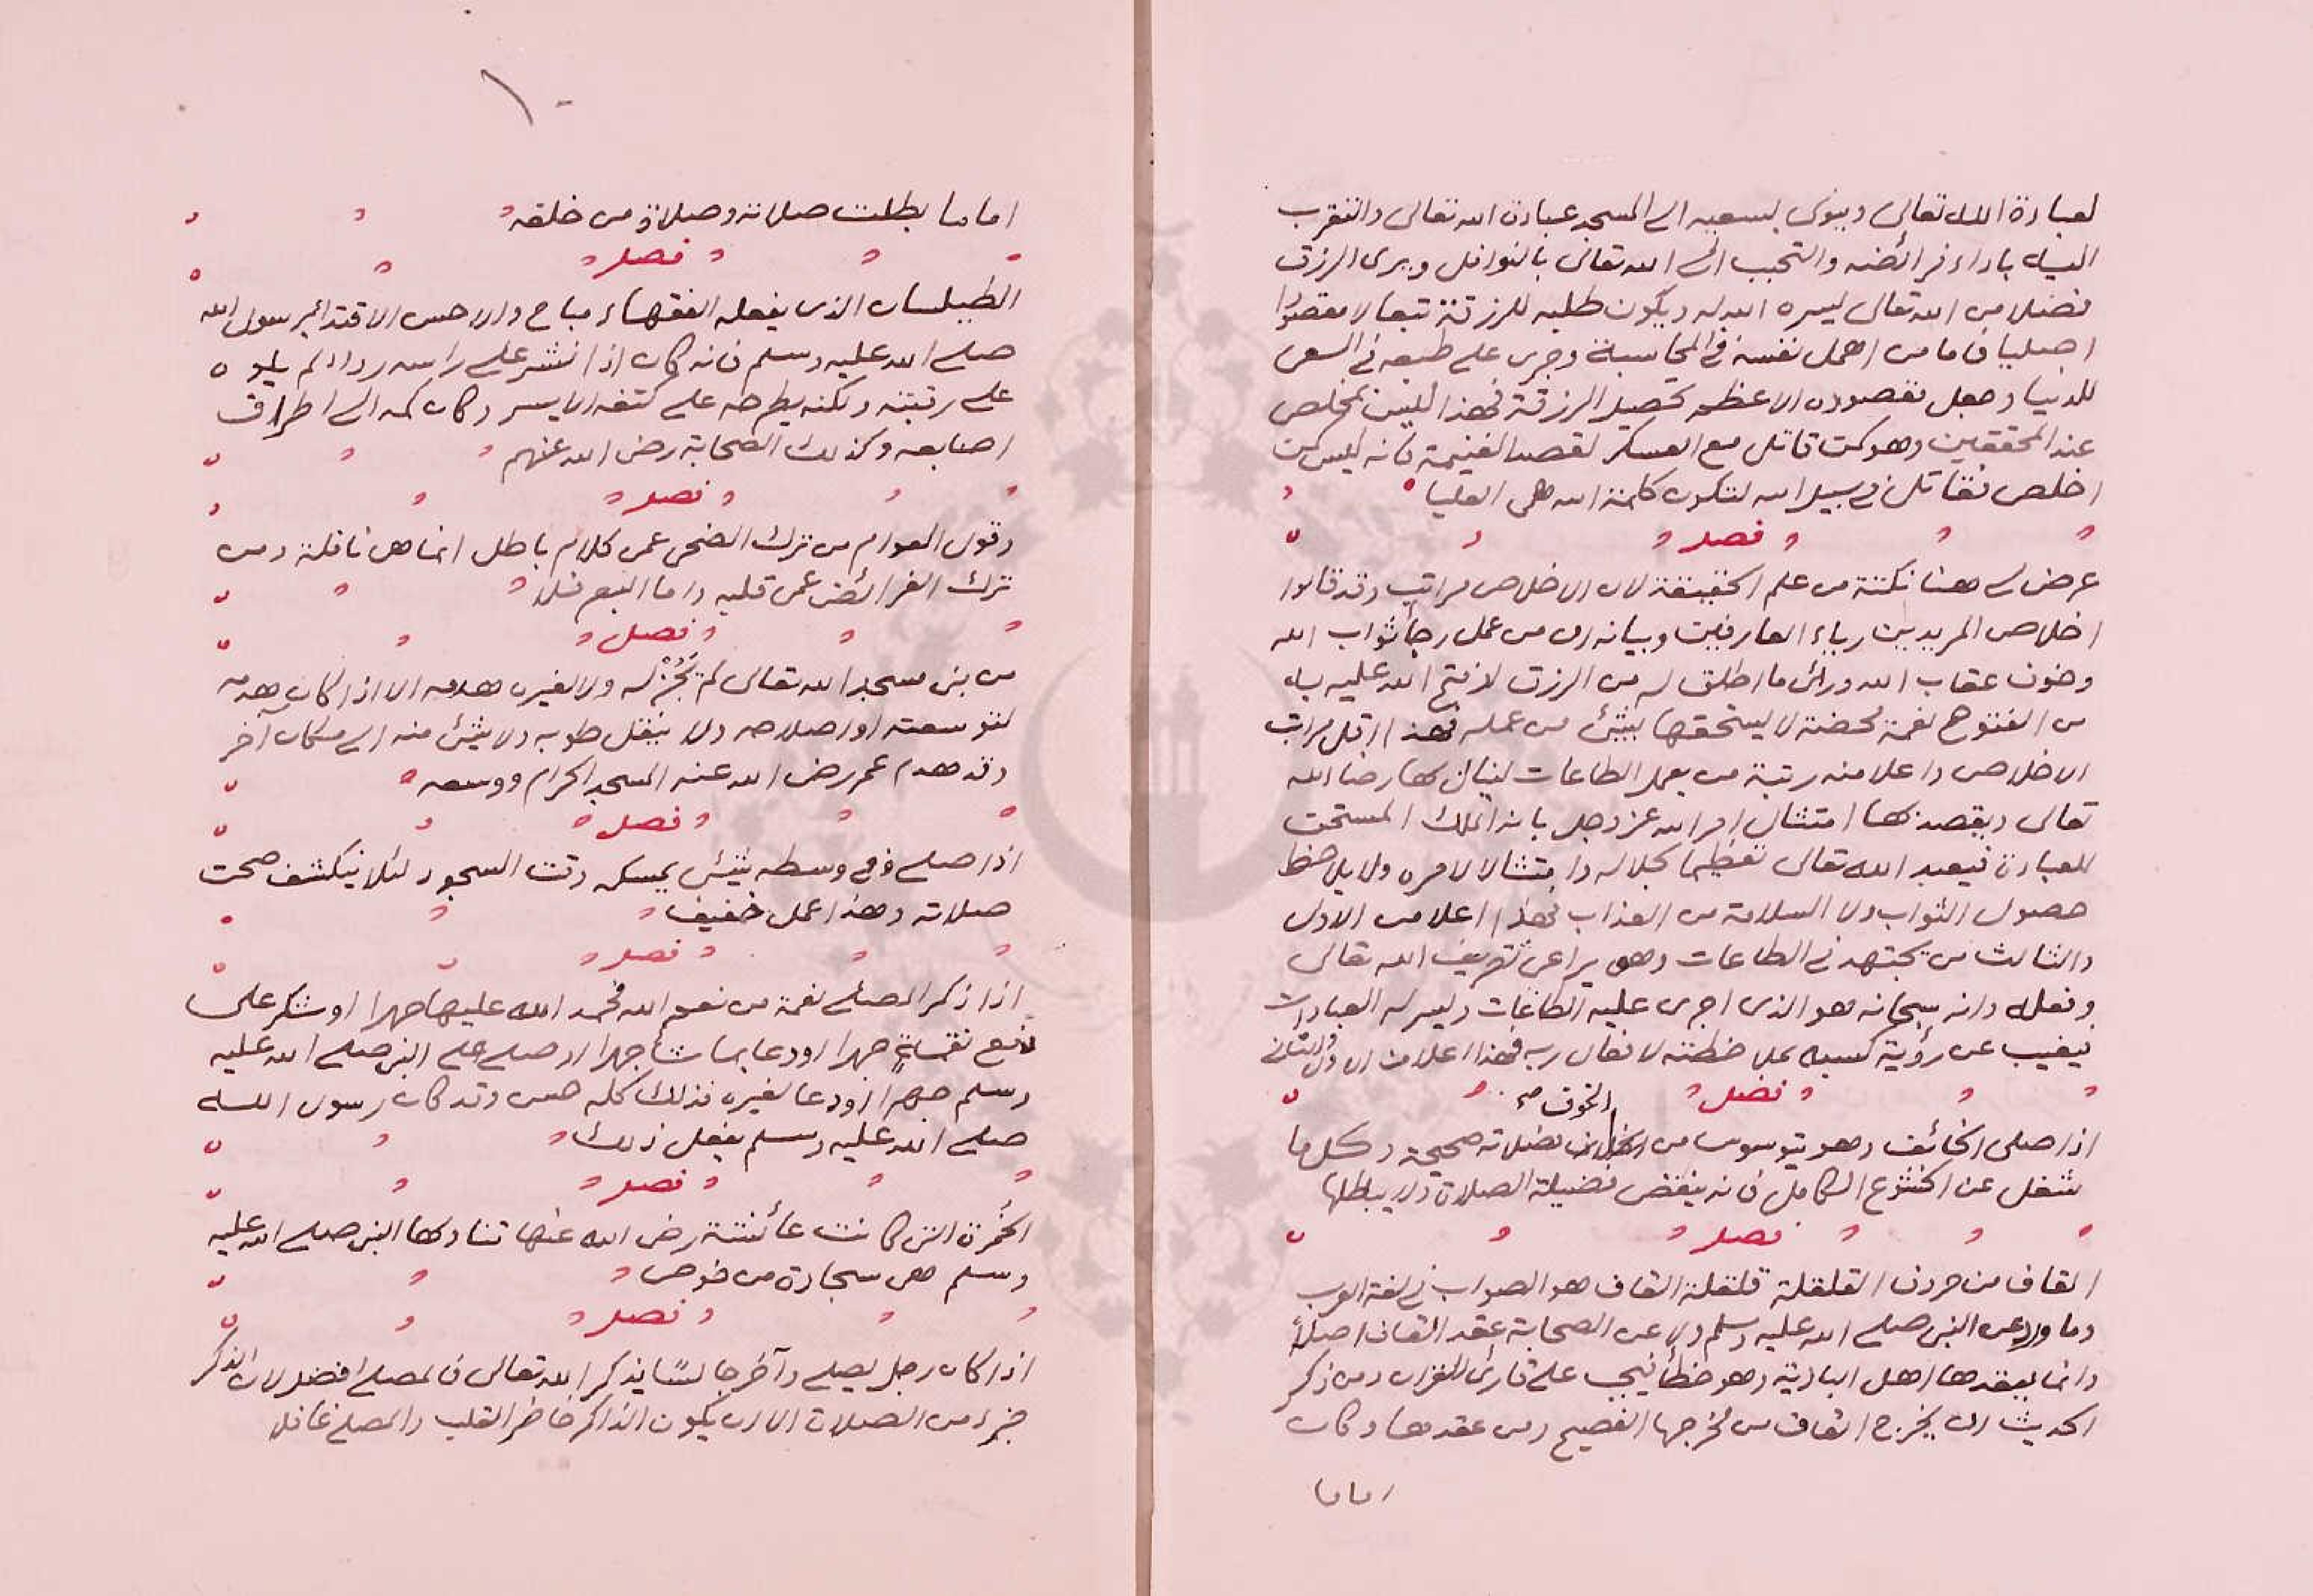 لعبادة الله تعالى وينوى بسعيه الى المسجد عبادة الله تعالى والتقرب
اليه باداء فرائضه والتحبب الى الله تعالى بالنوافل ويرى الرزق
فضلا من الله تعالى يسره الله له ويكون طلبه للرزقة تبعا لا مقصودا
اصليا فاما من اهمل نفسه فى المحاسبة وجرى على طبعه فى السعى
للدنيا وجعل مقصوده الاعظم تحصيل الرزقة فهذا ليس بمخلص
عند المحققين وهو كمن قاتل مع العسكر لقصد الغنيمة فانه ليس كمن
اخلص فقاتل فى سبيل الله لتكون كلمة الله هى العليا
فصل
عرض لى هنا نكتة من علم الحقيقة لان الاخلاص مراتب وقد قالوا
اخلاص المريدين رياء العارفين وبيانه ان من عمل رجأ ثواب الله
وخوف عقاب الله ورائ ما اطلق له من الرزق لا فتح الله عليه به
من الفتوح نعمة محضة لا يستحقها بشئ من عمله فهذا اقل مراتب
الاخلاص واعلا منه رتبة من يعمل الطاعات لينال بها رضا الله
تعالى ويقصد بها امتثال امر الله عز وجل بانه الملك المستحق
للعبادة فيعبد الله تعالى تعظيما لجلاله وامتثالا لامره ولا يلاحظ
حصول الثواب ولا السلامة من العذاب فهذا اعلا من الاول
والثالث من يجتهد فى الطاعات وهو يراعى تصريف الله تعالى
وفعله وانه سبحانه هو الذى اجرى عليه الطاعات ويسر له العبادات
فيغيب عن رؤية كسبه بملاحظته لافعال ربه فهذا اعلا من الاول والثانى
فصل
الخوف صح
اذا صلى الخائف وهو يتوسوس من فصلاته صحيحة وكل ما
شغل عن الخشوع الكامل فانه ينقض فضيلة الصلاة ولا يبطلها
فصل
القاف من حروف القلقلة قلقلة القاف هو الصواب فى لغة العرب
وما ورد عن النبى صلى الله عليه وسلم ولا عن الصحابة عقد القاف اصلاً
وانما يعقدها اهل البادية وهو خطأ فيجب على قارئ القران ومن ذكر
الحديث ان يخرج القاف من مخرجها الفصيح ومن عقدها وكان
اماما
١٠
اماما بطلت صلاته وصلاة من خلفه
فصل
الطيلسان الذى يفعله الفقهاء مباح والاحسن الاقتدا برسول الله
صلى الله عليه وسلم فانه كان اذا نشر على راسه ردا لم يلوه
على رقبته ولكنه يطرحه على كتفه الايسر وكان كمه الى اطراف
اصابعه وكذلك الصحابة رضى الله عنهم
فصل
وقول العوام من ترك الضحى عمى كلام باطل انما هى نافلة ومن
ترك الفرائض عمى قلبه واما البصر فلا
فصل
من بنى مسجد الله تعالى لم يَجُزْ له ولا لغيره هدمه الا اذا كان هدمه
لتوسعته او اصلاحه ولا ينقل طوبه ولا شئ منه الى مكان آخر
وقد هدم عمر رضى الله عنه المسجد الحرام ووسعه
فصل
اذا صلى وفى وسطه شئ يمسكه وقت السجود لئلا ينكشف صحت
صلاته وهذا عمل خفيف
فصل
اذا ذكر المصلى نعمة من نعم الله فحمد الله عليها جهرا او شكر على
دفع نقمةٍ جهرا او دعا بما شأ جهرا او صلى على النبى صلى الله عليه
وسلم جهرا او دعا لغيره فذلك كله حسن وقد كان رسول الله
صلى الله عليه وسلم يفعل ذلك
فصل
الخُمرة التى كانت عائشة رضى الله عنها تناولها النبى صلى الله عليه
وسلم هى سجادة من خوص
فصل
اذا كان رجل يصلى وآخر جالسًا يذكر الله تعالى فالمصلى افضل لان الذكر
جزء من الصلاة الا ان يكون الذاكر حاضر القلب والمصلى غافلا